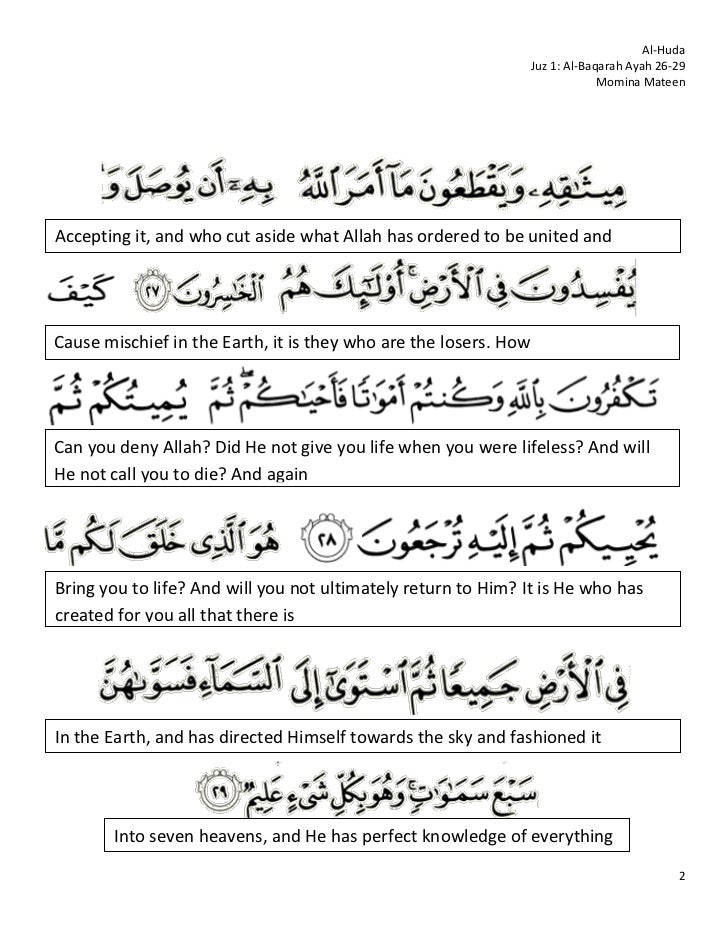 Al-Huda
Juz 1: Al-Baqarah Ayah 26-29
Momina Mateen
مِيثَٰقِهِۦ وَيَقْطَعُونَ مَآ أَمَرَ ٱللَّهُ بِهِۦٓ أَن يُوصَلَ وَ
Accepting it, and who cut aside what Allah has ordered to be united and
يُفْسِدُونَ فِي ٱلْأَرْضِ ۚ أُو۟لَٰٓئِكَ هُمُ ٱلْخَٰسِرُونَ ٢٧ كَيْفَ
Cause mischief in the Earth, it is they who are the losers. How
تَكْفُرُونَ بِٱللَّهِ وَكُنتُمْ أَمْوَٰتًا فَأَحْيَٰكُمْ ۖ ثُمَّ يُمِيتُكُمْ ثُمَّ
Can you deny Allah? Did He not give you life when you were lifeless? And will
He not call you to die? And again
يُحْيِيكُمْ ثُمَّ إِلَيْهِ تُرْجَعُونَ ٢٨ هُوَ ٱلَّذِى خَلَقَ لَكُم مَّا
Bring you to life? And will you not ultimately return to Him? It is He who has
created for you all that there is
فِي ٱلْأَرْضِ جَمِيعًا ثُمَّ ٱسْتَوَىٰٓ إِلَى ٱلسَّمَآءِ فَسَوَّىٰهُنَّ
In the Earth, and has directed Himself towards the sky and fashioned it
سَبْعَ سَمَٰوَٰتٍ ۚ وَهُوَ بِكُلِّ شَىْءٍ عَلِيمٌ ٢٩
Into seven heavens, and He has perfect knowledge of everything
2